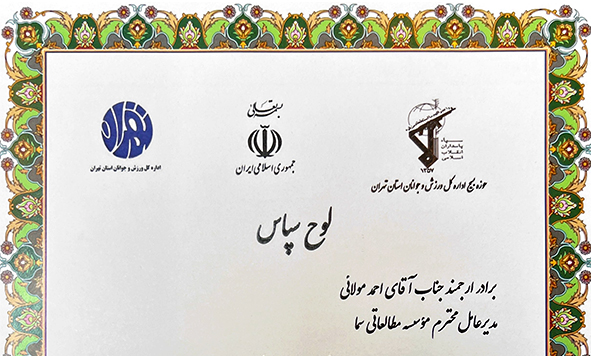 بسمه تعالی
جمهوری اسلامی ایران
سپاه
پاسداران
انقلاب
اسلامی
۱۳۵۷
حوزه بسیج اداره کل ورزش و جوانان استان تهران
تهران
اداره کل ورزش و جوانان استان تهران
لوح سپاس
برادر ارجمند جناب آقای احمد مولائی
مدیرعامل محترم مؤسسه مطالعاتی سما